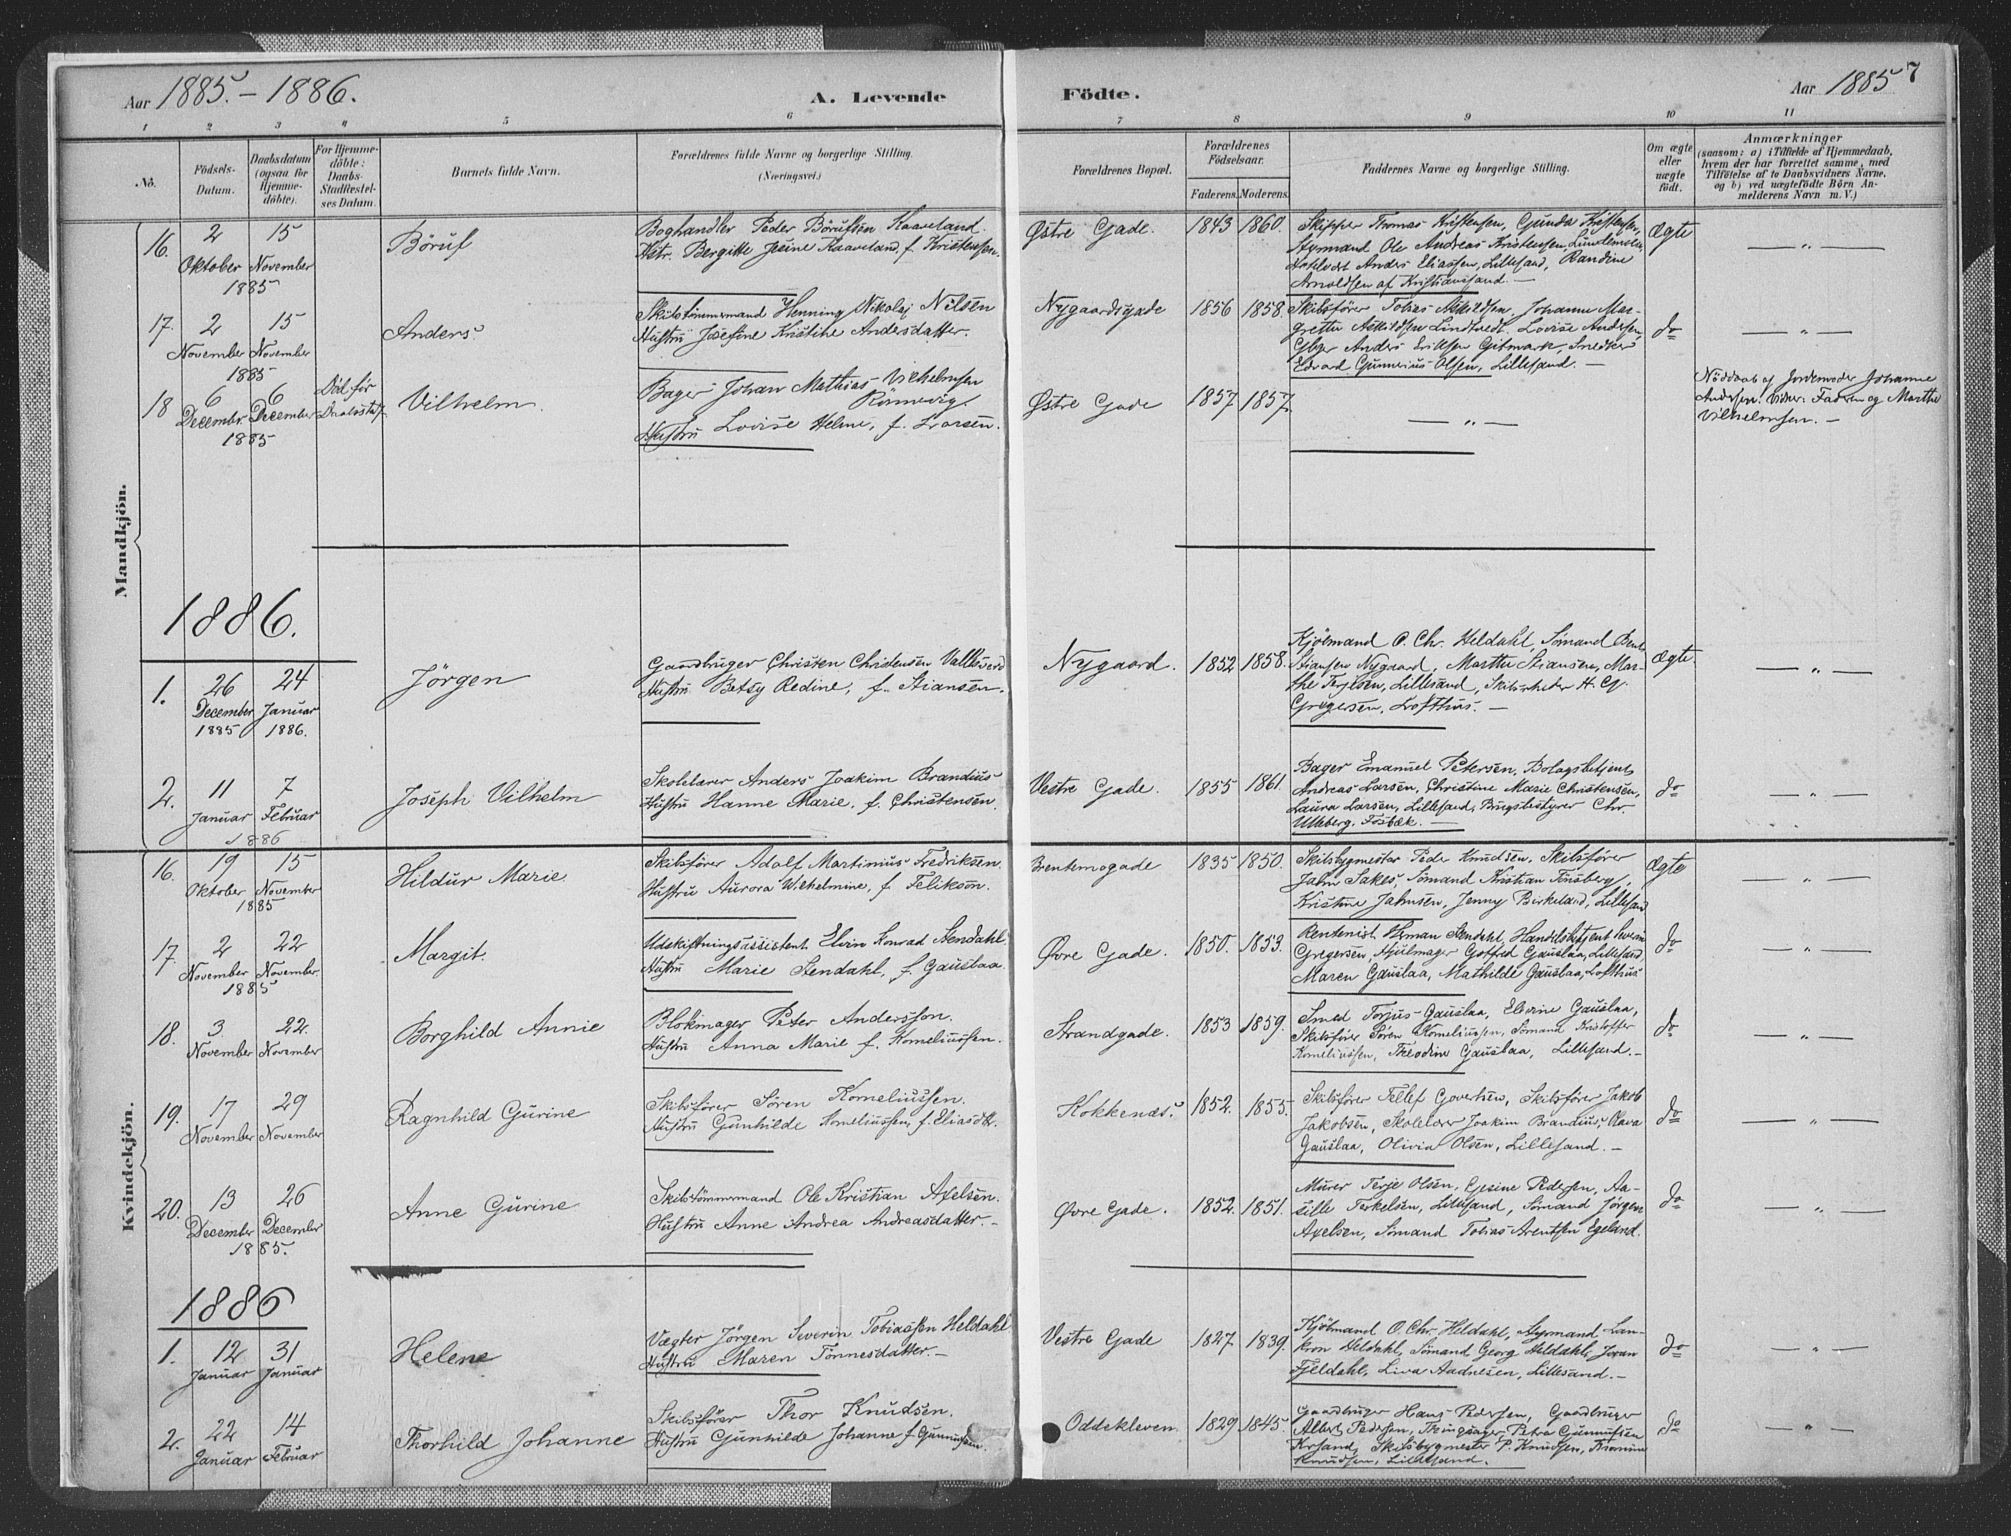 Aar 1885. - 1886.
A. Levende
Födte.
Aar 1885
7
1 2 3 4 5 6 7 8 9 10 11
No.
Födsels-Datum.
Daabsdatum (ogsaa for Hjemme-döbte).
For Hjemme-döbte: Daabs-Stadfæstel-ses Datum.
Barnets fulde Navn.
Forældrenes fulde Navne og borgerlige Stilling.
(Næringsvei.)
Forældrenes Bopæl.
Forældrenes Födselsaar.
Faderens. Moderens.
Faddernes Navne og borgerlige Stilling.
Om ægte eller uægte födt.
Anmærkninger
(saasom: a) i Tilfælde af Hjemmedaab,
hvem der har forrettet samme, med
Tilföielse af to Daabsvidners Navne,
og b) ved uægtefödte Börn An-
melderens Navn m. V.)
Mandkjön.
16. 2 Oktober 15 November 1885
Böruf
Boghandler Peder Börufsen Kaaveland.
Hstr. Bergitte Jesine Kaaveland, f. Kristensen.
Østre Gade. 1843 1860.
Skipper Thomas Kristensen, Gunda Kristensen,
Styrmand Ole Andreas Kristensen,
Anders Eliassen, Lillesand, Randine
Arnoldsen af Kristianssand. —
Ægte
— " —
17. 2 November 15 November 1885
Anders
Skibstömmermand Henning Nikolaj Nilsen
Hustru Josefine Kristine Andersdatter.
Nygaardsgade 1856 1858.
Skibsförer Tobias Askildsen, Johanne Mar-
grethe Askildsen Lindtvedt. Lovise Andersen,
Gbgr Anders Eriksen Gitmark, Snedker
Edvard Gunnerius Olsen, Lillesand. —
do
— " —
18 6 Decembr. 6 December 1885
Död før Daabsstadf.
Vilhelm.
Bager Johan Mathias Vilhelmsen
Rönnevig.
Hustru Lovise Helene, f. Larsen.
Østre Gade 1857 1857.
— " —
Nöddaab af Jordemoder Johanne
Andersen. Vidner: Faderen og Marthe
Vilhelmsen. —
1886.
1. 26 December 1885 24 Januar 1886.
Jörgen
Gaardbruger Christen Christensen Vallesverd
Hustru Betsy Redine, f. Stiansen.
Nygaard. 1852 1858.
Kjölmand O. Chr. Heldahl, Sömand Bent
Stiansen Nygaard, Marthe Stiansen, Mar-
the Terjesen, Lillesand, Skibsrheder H. G.
Gregersen, Lofthus. —
Ægte.
— " —
2. 11 Januar 7 Februar 1886
Joseph Vilhelm
Skolelærer Anders Joakim Brandius
Hustru Hanne Marie, f. Christensen.
Vestre Gade. 1855 1861.
Bager Emanuel Petersen, Bolagsbetjent
Andreas Larsen, Christine Marie Christensen,
Laura Larsen, Lillesand, Brugsbestyrer Chr.
Ulleberg, Fosbæk. —
do
— " —
Kvindekjön.
16. 19 Oktober 15 November 1885
Hildur Marie
Skibsförer Adolf Martinius Fredriksen.
Hustru Aurora Wilhelmine, f. Feliksön.
Brentemogade 1835 1850.
Skibsbygmester Peder Knudsen, Skibsförer
Jahn Sakes, Sömand Kristian Tinsberg,
Kristine Jahnsen, Jenny Birkeland, Lillesand
Ægte
— " —
17. 2 November 22 November. 1885
Margit.
Udskiftningsassistent Elvin Konrad Stendahl.
Hustru Marie Stendahl, f. Gauslaa.
Øvre Gade. 1850. 1853.
Rentenist Herman Stendahl, Handelsbetjent Severin
Gregersen, Hjulmager Gotfred Gauslaa, Lillesand,
Maren Gauslaa, Mathilde Gauslaa, Lofthus
do
— " —
18. 3 November 22. November
Borghild Annie
Blokmager Peter Andersson.
Hustru Anna Marie f. Korneliussen.
Strandgade. 1853 1859.
Smed Torjus Gauslaa, Elevine Gauslaa,
Skibsförer Sören Korneliussen, Sömand Kristoffer
Korneliussen, Theodine Gauslaa, Lillesand. —
do
— " —
19. 17 November 29 November
Ragnhild Gurine
Skibsförer Sören Korneliussen.
Hustru Gunhilde Korneliussen, f. Eliasdtr.
Kokkenæs. 1852. 1855.
Skibsförer Tellef Govertsen, Skibsförer Jakob
Jakobsen, Skolelærer Joakim Brandius, Clara
Gauslaa, Olivia Olsen, Lillesand. —
do
— " —
20. 13 December 26 December 1885.
Anne Gurine
Skibstömmermand Ole Kristian Axelsen.
Hustru Anne Andrea Andreasdatter. —
Øvre Gade. 1852. 1851.
Murer Terje Olsen, Gesine Pedersen, Aa-
sille Terkelsen, Lillesand, Sömand Jörgen
Axelsen, Sömand Tobias Arentsen Egeland.
do
— " —
1886
1. 12 Januar 31 Januar
Helene
Vægter Jörgen Severin Tobiassen Heldahl
Hustru Maren Tönnesdatter. —
Vestre Gade 1827. 1839.
Kjölmand O. Chr. Heldahl, Styrmand Lau-
Heldahl, Sömand Georg Heldahl, Joran
Fjeldahl, Lina Aadnesen, Lillesand. —
do
— " —
2. 22 Januar 14 Februar
Thorhild Johanne
Skibsförer Thor Knudsen.
Hustru Gunhilde Johanne f. Gunnufsen.
Oddekleven. 1829 1845.
Gaardbruger Hans Pedersen, Gaardbruger
Albert Pedersen, Petra Gunnufsen
Krsand, Skibsbygmester P. Knudsen,
Knudsen, Lillesand.
do
— " —